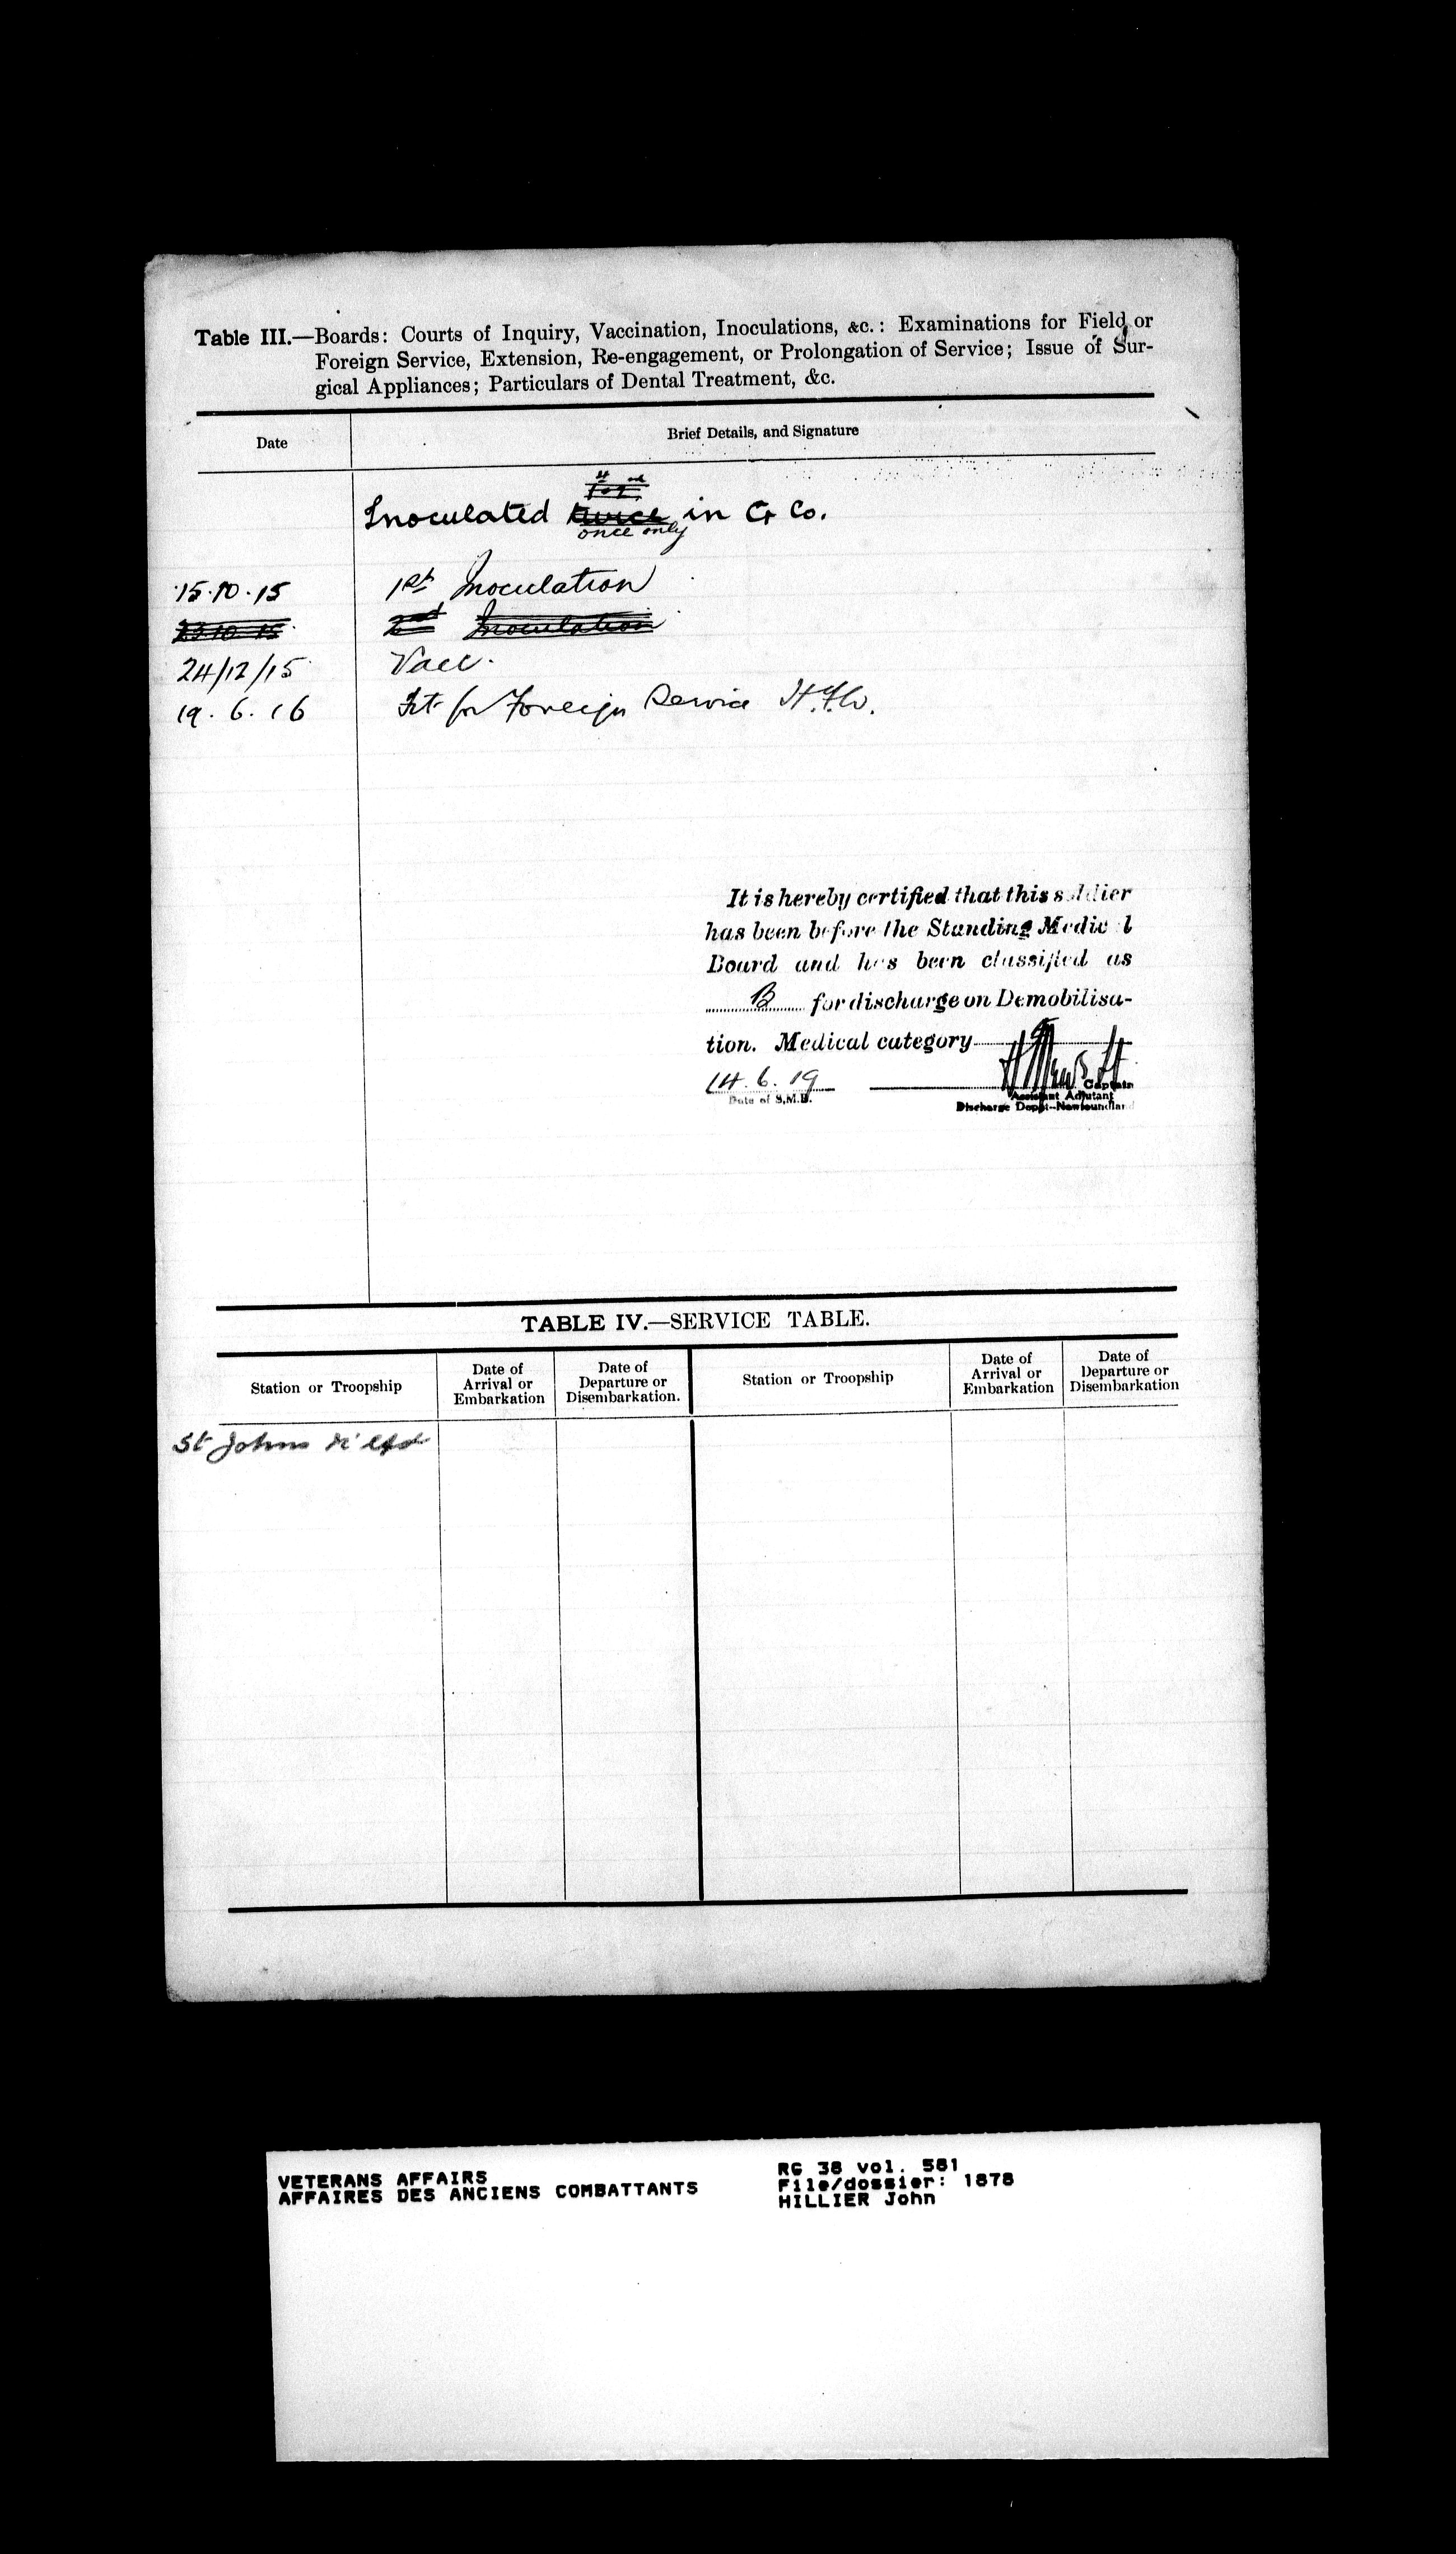 Table III.—Boards: Courts of Inquiry, Vaccination, Inoculations, &c.: Examinations for Field or
Foreign Service, Extension, Re-engagement, or Prolongation of Service; Issue of Sur-
gical Appliances; Particulars of Dental Treatment, &c.
Date Brief Details, and Signature
Inoculated twice in G Co.
once only
15.10.15 1st Inoculation
23.10.15 2nd Inoculation
24/12/15 Vacc.
19.6.16 Fit for Foreign Service
It is hereby certified that this soldier
has been before the Standing Medical
Board and has been classified as
B for discharge on Demobilisa-
tion. Medical category
14.6.19
Captain
Date of S.M.B. Assistant Adjutant
Discharge Depot--Newfoundland
TABLE IV.—SERVICE TABLE.
Station or Troopship Date of Arrival or Embarkation Date of Departure or Disembarkation. Station or Troopship Date of Arrival or Embarkation Date of Departure or Disembarkation
St Johns N'fld
VETERANS AFFAIRS
AFFAIRES DES ANCIENS COMBATTANTS
RG 38 vol. 581
File/dossier: 1878
HILLIER John